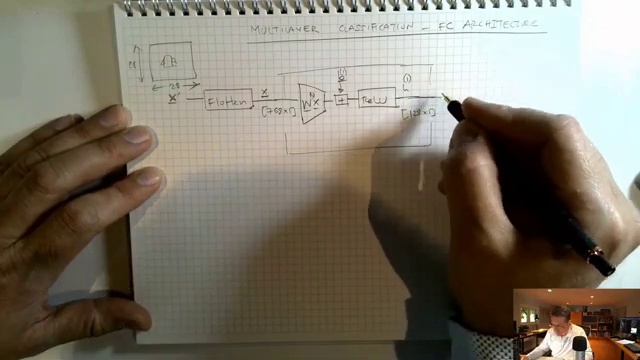 MULTILAYER CLASSIFICATION - FC ARCHITECTURE
28
x
Flatten
x
[768x1]
W x
+
ReLU
h
(1)
[128x1]